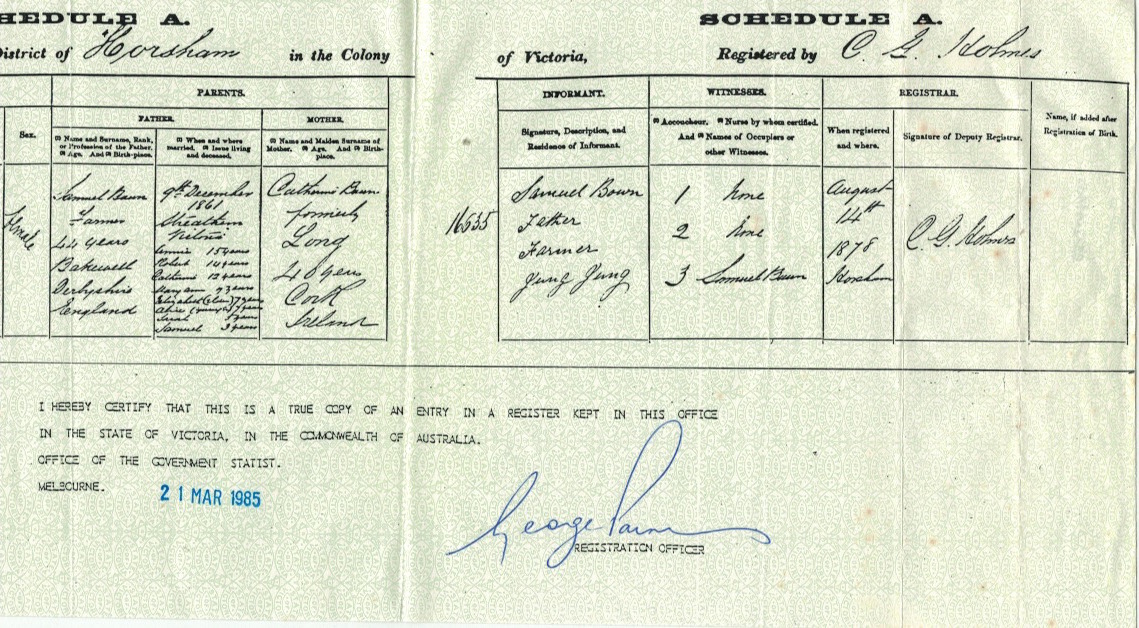 HEDULE A.
SCHEDULE A.
District of Horsham in the Colony of Victoria, Registered by C. G. Holmes
PARENTS.
INFORMANT.
WITNESSES.
REGISTRAR.
Sex.
FATHER.
MOTHER.
(1) Name and Surname, Rank,
or Profession of the Father.
(2) Age. And (3) Birth-place.
(1) When and where
married. (2) Issue living
and deceased.
(1) Name and Maiden Surname of
Mother. (2) Age. And (3) Birth-
place.
Signature, Description, and
Residence of Informant.
(1) Accoucheur. (2) Nurse by whom certified.
And (3) Names of Occupiers or
other Witnesses.
When registered
and where.
Signature of Deputy Registrar.
Name, if added after
Registration of Birth.
Female
Samuel Bown
Farmer
44 years
Bakewell
Derbyshire
England
9th December
1861
Annie 15 years
Robert 14 years
Catherine 12 years
Mary Ann 9 years
7 years
Samuel 3 years
Catherine Bown
formerly
Long
40 years
Cork
Ireland
16535
Samuel Bown
Father
Farmer
Jung Jung
1 None
2 None
3 Samuel Bown
August
14th
1878
Horsham
C. G. Holmes
I HEREBY CERTIFY THAT THIS IS A TRUE COPY OF AN ENTRY IN A REGISTER KEPT IN THIS OFFICE
IN THE STATE OF VICTORIA, IN THE COMMONWEALTH OF AUSTRALIA.
OFFICE OF THE GOVERNMENT STATIST.
MELBOURNE. 21 MAR 1985
George
REGISTRATION OFFICER